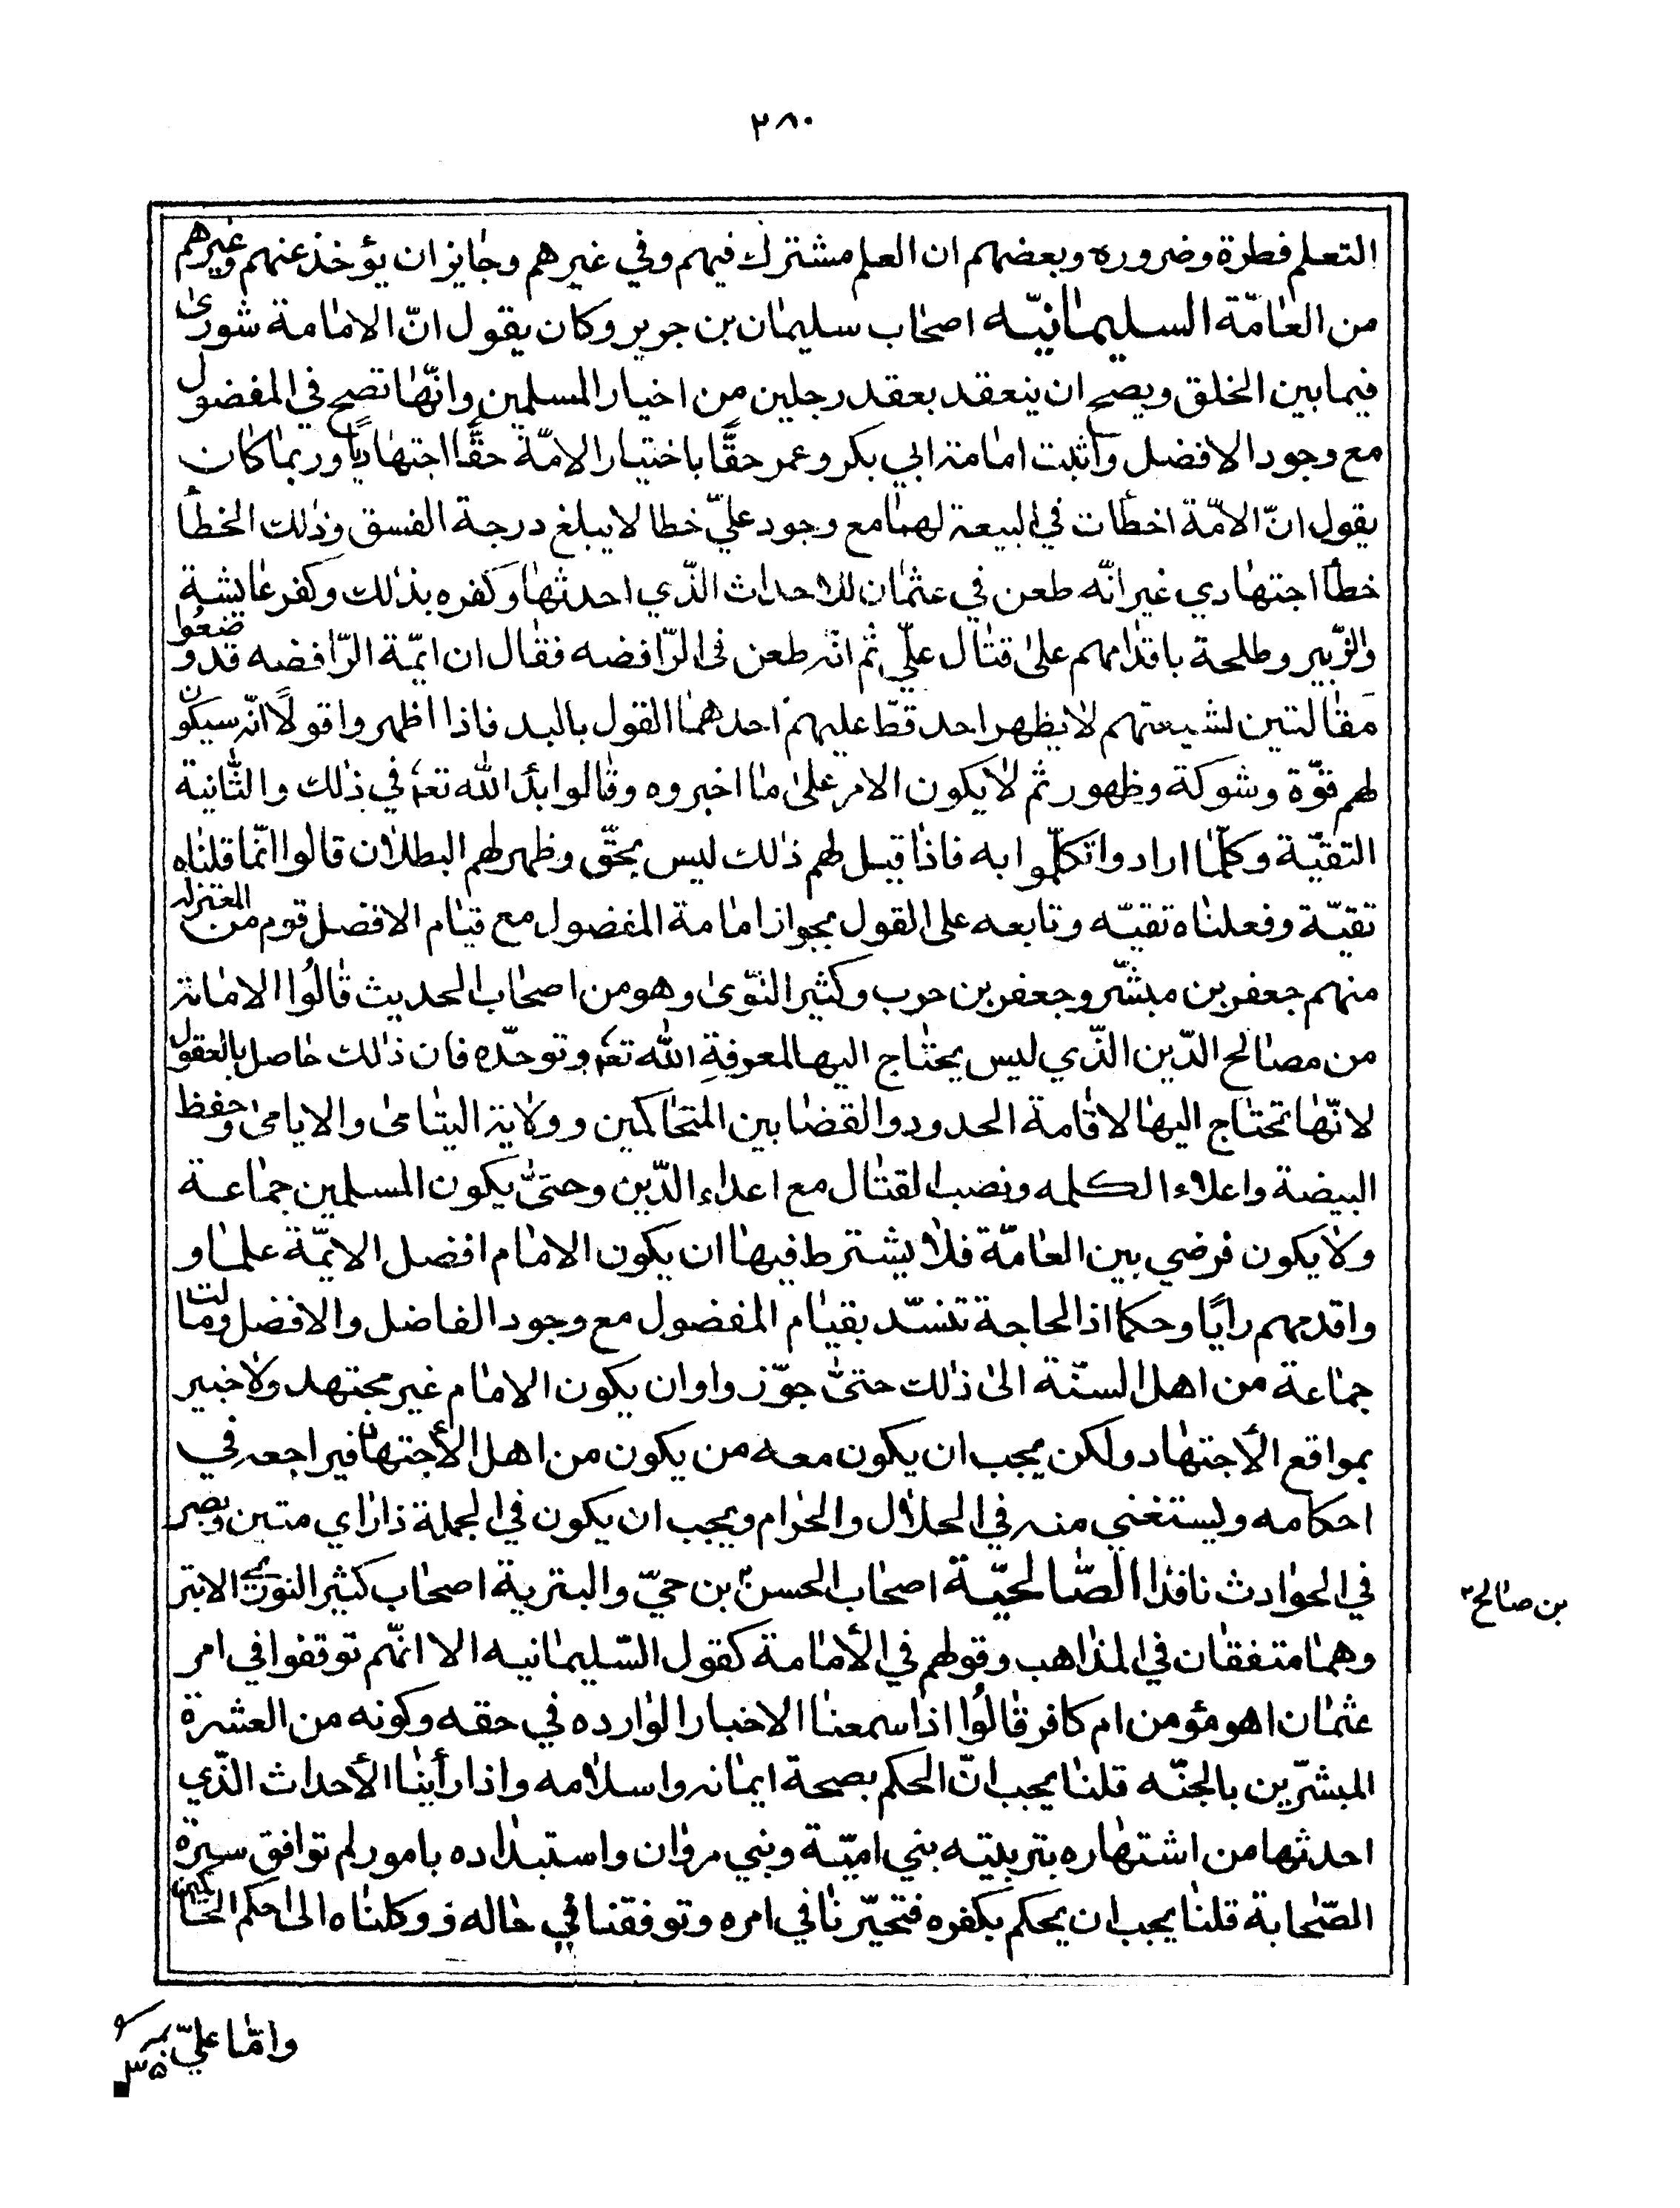 ٢٨٠
التعلم فطرة وضروره وبعضهم ان العلم مشترك فيهم وفي غيرهم وجايز ان يؤخذ عنهم وغيرهم
من العامّة السليمانيّه اصحاب سليمان بن جرير وكان يقول انّ الامامة شورى
فيما بين الخلق ويصح ان ينعقد بعقد رجلين من اخيار المسلمين وانّها تصح في المفضول
مع وجود الافضل وأثبت امامة ابي بكر وعمر حقًّا باختيار الامّة حقًّا اجتهاديًا وربما كان
يقول انّ الامّة اخطأت في البيعة لهما مع وجود عليّ خطا لا يبلغ درجة الفسق وذلك الخطأ
خطأ اجتهادي غير انّه طعن في عثمان للاحداث الّذي احدثها وكفره بذلك وكفر عايشة
والزّبير وطلحة باقدامهم على قتال عليّ ثم انّه طعن في الرّافضه فقال ان ايمّة الرّافضه قد وضعوا
مقالتين لشيعتهم لا يظهر احد قطّ عليهم احدهما القول بالبد فاذا اظهر واقولًا انّه سيكون
لهم قوّة وشوكة وظهور ثم لا يكون الامر على ما اخبروه وقالوا بدأ الله تعم في ذلك والثّانية
التقيّة وكلّما ارادوا تكلّموا به فاذا قيل لهم ذلك ليس بحقّ وظهر لهم البطلان قالوا انّما قلناه
تقيّة وفعلناه تقيّه وتابعه على القول بجواز امامة المفضول مع قيام الافضل قوم من المعتزله
منهم جعفر بن مبشّر وجعفر بن حرب وكثير النّوى وهو من اصحاب الحديث قالُوا الامامة
من مصالح الدّين الّذي ليس يحتاج اليها لمعرفةِ الله تعم وتوحّده فان ذلك حاصل بالعقول
لانّها تحتاج اليها لاقامة الحدود والقضا بين المتحاكمين وولاية اليتامى والايامى وحفظ
البيضة واعلاء الكلمه ونصب القتال مع اعداء الدّين وحتىّ يكون المسلمين جماعة
ولا يكون فرضي بين العامّة فلا يشترط فيها ان يكون الامام افضل الايمّة علما و
واقدمهم رايًا وحكما اذ الحاجة تنسّد بقيام المفضول مع وجود الفاضل والافضل ومالت
جماعة من اهل السنّة الى ذلك حتىّ جوّزوا وان يكون الامام غير مجتهد ولا خبير
بمواقع الأجتهاد ولكن يجب ان يكون معه من يكون من اهل الأجتهاد فيراجعه في
احكامه وليستغني منه في الحلال والحرام ويجب ان يكون في الجملة ذا راي متين وبصر
في الحوادث نافذا الصّالحيّة اصحاب الحسن بن حيّ والبترية اصحاب كثير النوى الابتر
بن صالح
وهما متفقان في المذاهب وقولهم في الأمامة كقول السّليمانيه الا انهّم توقفوا في امر
عثمان اهو مؤمن ام كافر قالُوا اذا سمعنا الاخبار الوارده في حقه وكونه من العشرة
المبشرّين بالجنّه قلنا يجب انّ الحكم بصحة ايمانه واسلامه واذا رأينا الأحداث الّذي
احدثها من اشتهاره بتربيته بني اميّة وبني مروان واستبداده بامور لم توافق سيرة
الصّحابة قلنا يجب ان يحكم بكفره فتحيّرنا في امره وتوفقنا في حاله ووكلناه الى احكم الحاكمين
وامّا عليّ